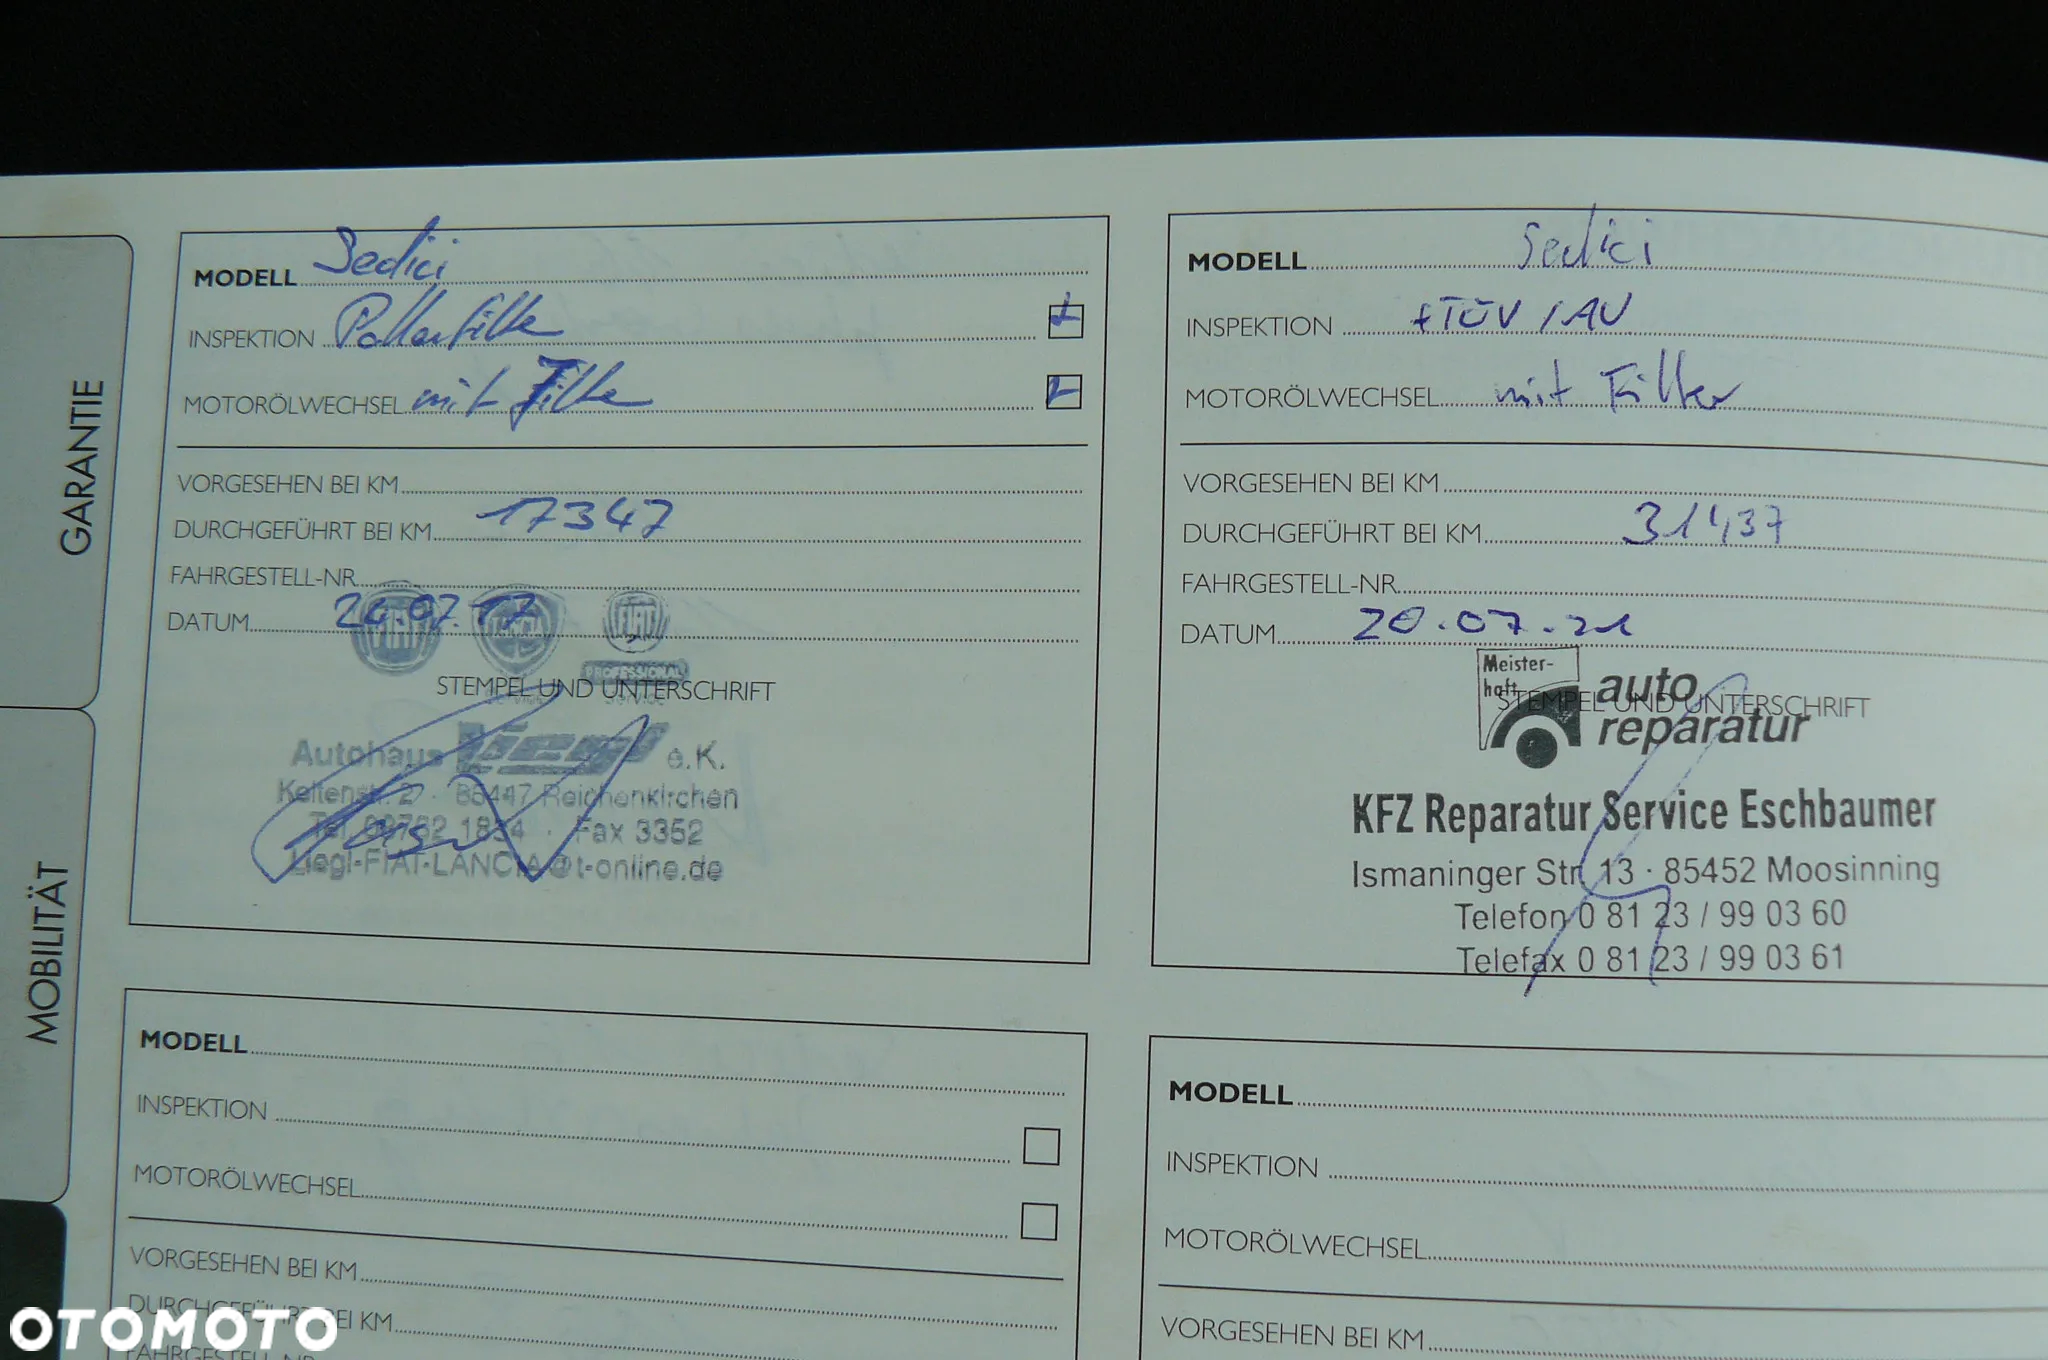 GARANTIE
MOBILITÄT
MODELL Sedici
INSPEKTION Pollenfilter
MOTORÖLWECHSEL mit Filter
VORGESEHEN BEI KM
DURCHGEFÜHRT BEI KM 17347
FAHRGESTELL-NR.
DATUM 07.17
FIAT LANCIA FIAT
PROFESSIONAL
STEMPEL UND UNTERSCHRIFT
Autohaus Liegl e.K.
Keltenstr. 2 · 85447 Reichenkirchen
Tel. 08762 1834 · Fax 3352
Liegl-FIAT-LANCIA@t-online.de
MODELL Sedici
INSPEKTION +TÜV / AU
MOTORÖLWECHSEL mit Filter
VORGESEHEN BEI KM
DURCHGEFÜHRT BEI KM 31437
FAHRGESTELL-NR.
DATUM 20.07.21
Meister-
haft
auto
reparatur
STEMPEL UND UNTERSCHRIFT
KFZ Reparatur Service Eschbaumer
Ismaninger Str. 13 · 85452 Moosinning
Telefon 0 81 23 / 99 03 60
Telefax 0 81 23 / 99 03 61
MODELL
INSPEKTION
MOTORÖLWECHSEL
VORGESEHEN BEI KM
DURCHGEFÜHRT BEI KM
FAHRGESTELL-NR.
MODELL
INSPEKTION
MOTORÖLWECHSEL
VORGESEHEN BEI KM
OTOMOTO